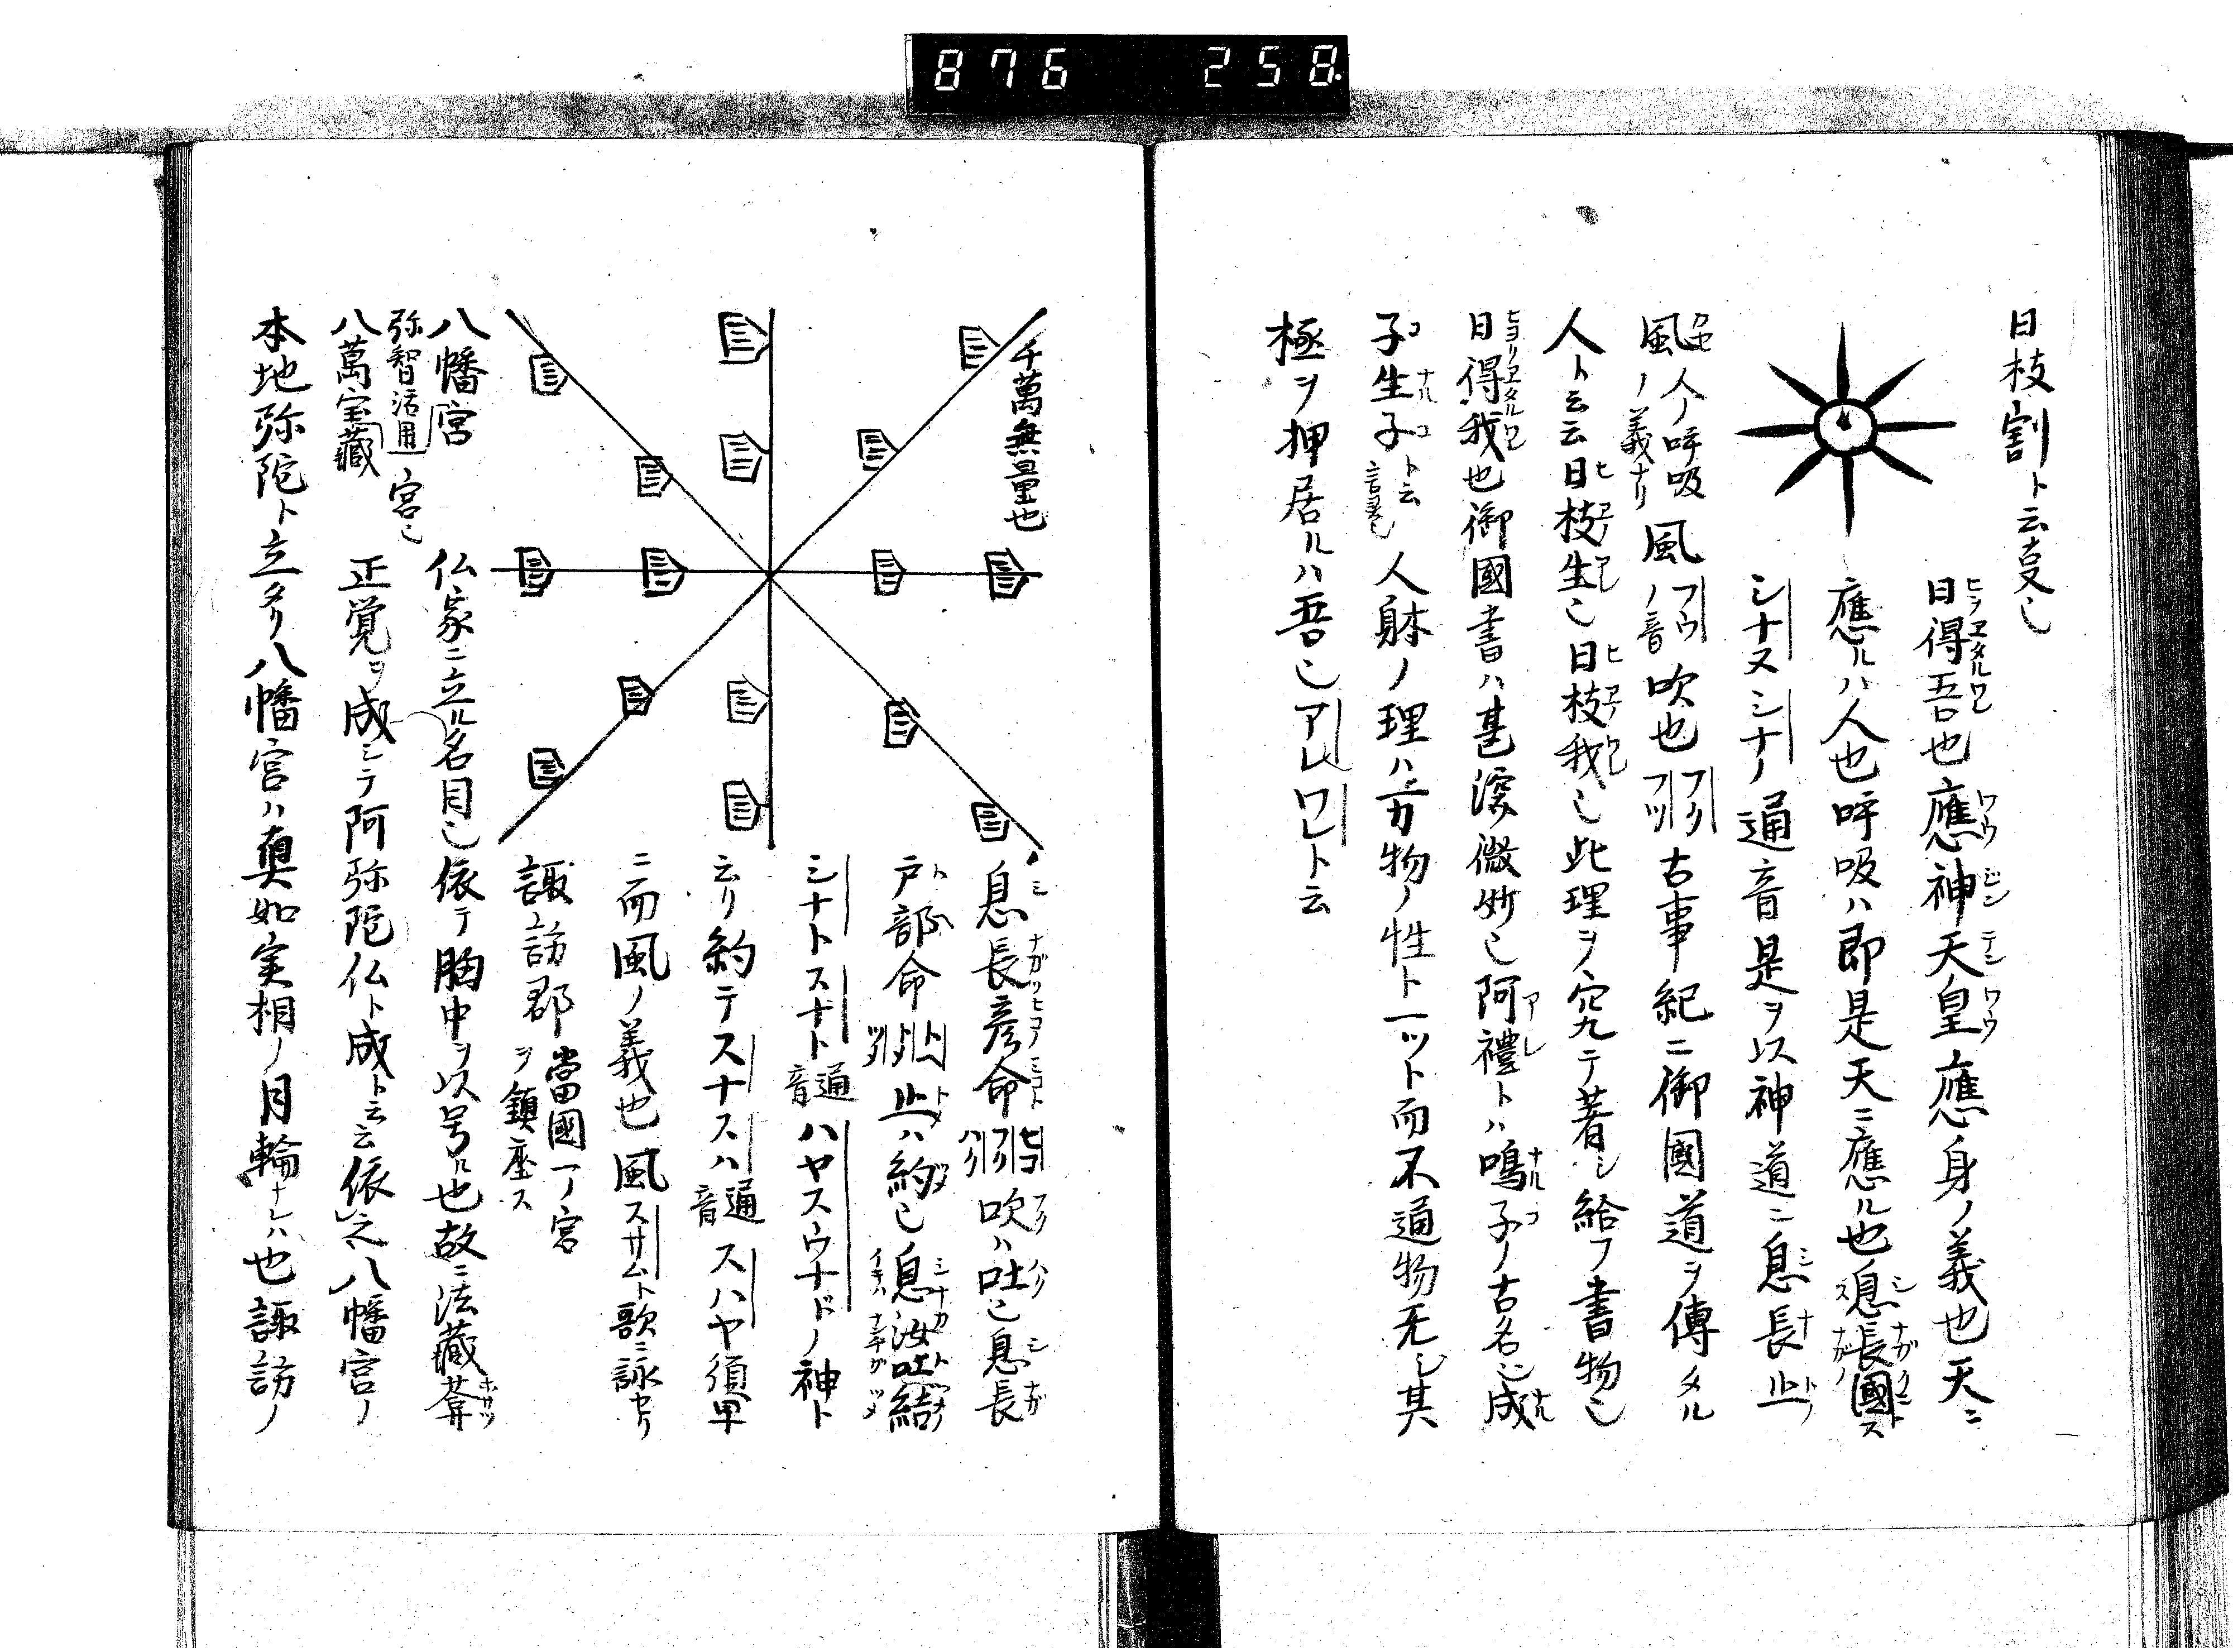 876 258
日枝割ト云叓也
日得吾也應神天皇應身ノ義也天ニ
應ルハ人也呼吸ハ即是天ニ應ル也息長國ス
シナヌシナノ通音是ヲ以神道ニ息長止
風人ノ呼吸ノ義ナリ風フウノ音吹也フクフツ古事紀ニ御國道ヲ傳タル
人ト云云日枝生也日枝我也此理ヲ究テ著シ給フ書物也
日得我也御國書ハ甚深微妙也阿禮トハ鳴子ノ古名也成
子生子ト云人躰ノ理ハ万物ノ性ト一ツト而不通物无シ其
極ヲ押居ルハ吾也アレワレト云
千萬無量也
息長彦命ヒコフクハク吹ハ吐也息長
戸部命止ハ約也息汝吐結
シナトスナト通音ハヤスウナドノ神ト
云リ約テスナスハ通音スハヤ須畢
ニ而風ノ義也風スサムト歌ニ詠セリ
諏訪郡當國一ノ宮ヲ鎮座ス
八幡宮 仏家ニ立ル名目也依テ胸中ヲ以号ル也故ニ法藏菩薩
弥智活用宮也
八萬宝藏 正覚ヲ成シテ阿弥陀仏ト成ト云云依之八幡宮ノ
本地弥陀ト立タリ八幡宮ハ真如実相ノ月輪ナレハ也諏訪ノ